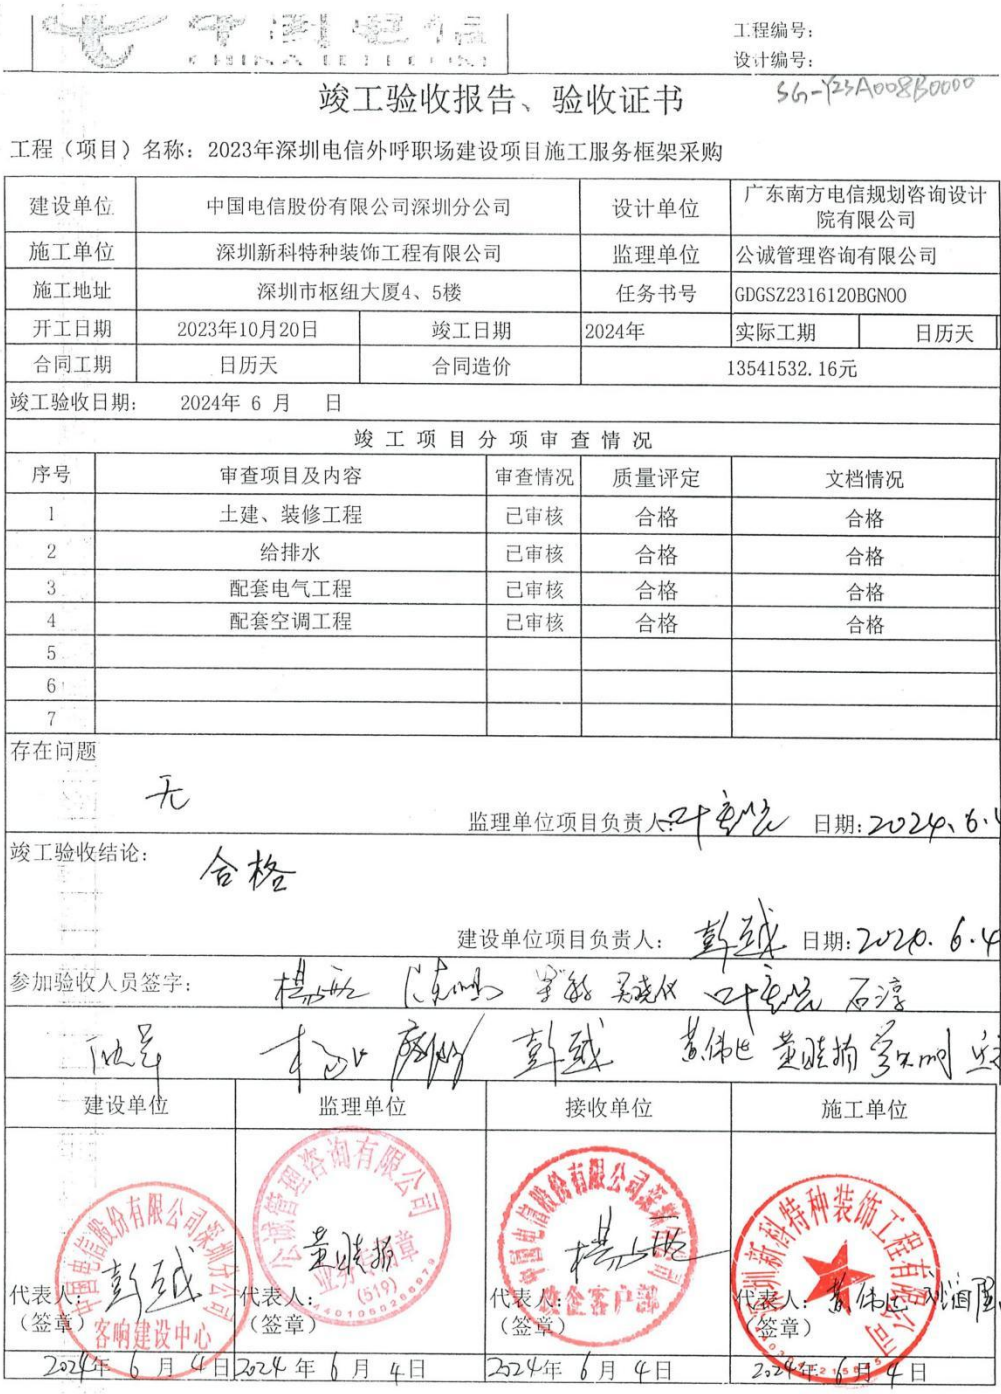 中国电信
CHINA TELECOM
工程编号：
设计编号：
SG-Y23A008B0000
竣工验收报告、验收证书
工程（项目）名称：2023年深圳电信外呼职场建设项目施工服务框架采购
建设单位 中国电信股份有限公司深圳分公司 设计单位 广东南方电信规划咨询设计
院有限公司
施工单位 深圳新科特种装饰工程有限公司 监理单位 公诚管理咨询有限公司
施工地址 深圳市枢纽大厦4、5楼 任务书号 GDGSZ2316120BGN00
开工日期 2023年10月20日 竣工日期 2024年 实际工期 日历天
合同工期 日历天 合同造价 13541532.16元
竣工验收日期： 2024年 6 月 日
竣工项目分项审查情况
序号 审查项目及内容 审查情况 质量评定 文档情况
1 土建、装修工程 已审核 合格 合格
2 给排水 已审核 合格 合格
3 配套电气工程 已审核 合格 合格
4 配套空调工程 已审核 合格 合格
5
6
7
存在问题
无
监理单位项目负责人： 日期：2024.6.4
竣工验收结论：
合格
建设单位项目负责人： 彭越 日期：2020.6.4
参加验收人员签字：
石淳
彭越 黄晓扬
建设单位 监理单位 接收单位 施工单位
中国电信股份有限公司深圳分公司
客响建设中心
公诚管理咨询有限公司
业务专用章
(519)
中国电信股份有限公司深圳分公司
政企客户部
深圳新科特种装饰工程有限公司
代表人： 彭越 代表人： 黄晓扬 代表人： 代表人：
（签章） （签章） （签章） （签章）
2024年 6 月 4日 2024年 6月 4日 2024年 6月 4日 2024年 6月 4日